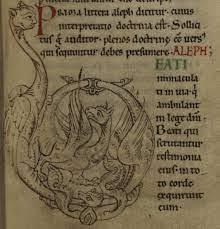 Prima littera aleph dicitur. cuius
interpretatio doctrina est. Sollici
auditor. plenos doctrinę eē vers
qui sequuntur debes presumere. ALEPH
EATI
inmacula
ti in via qui
ambulant
in lege dn̄i
Beati qui
scrutantur
testimonia
eius in to
to corde
exquirunt
eum